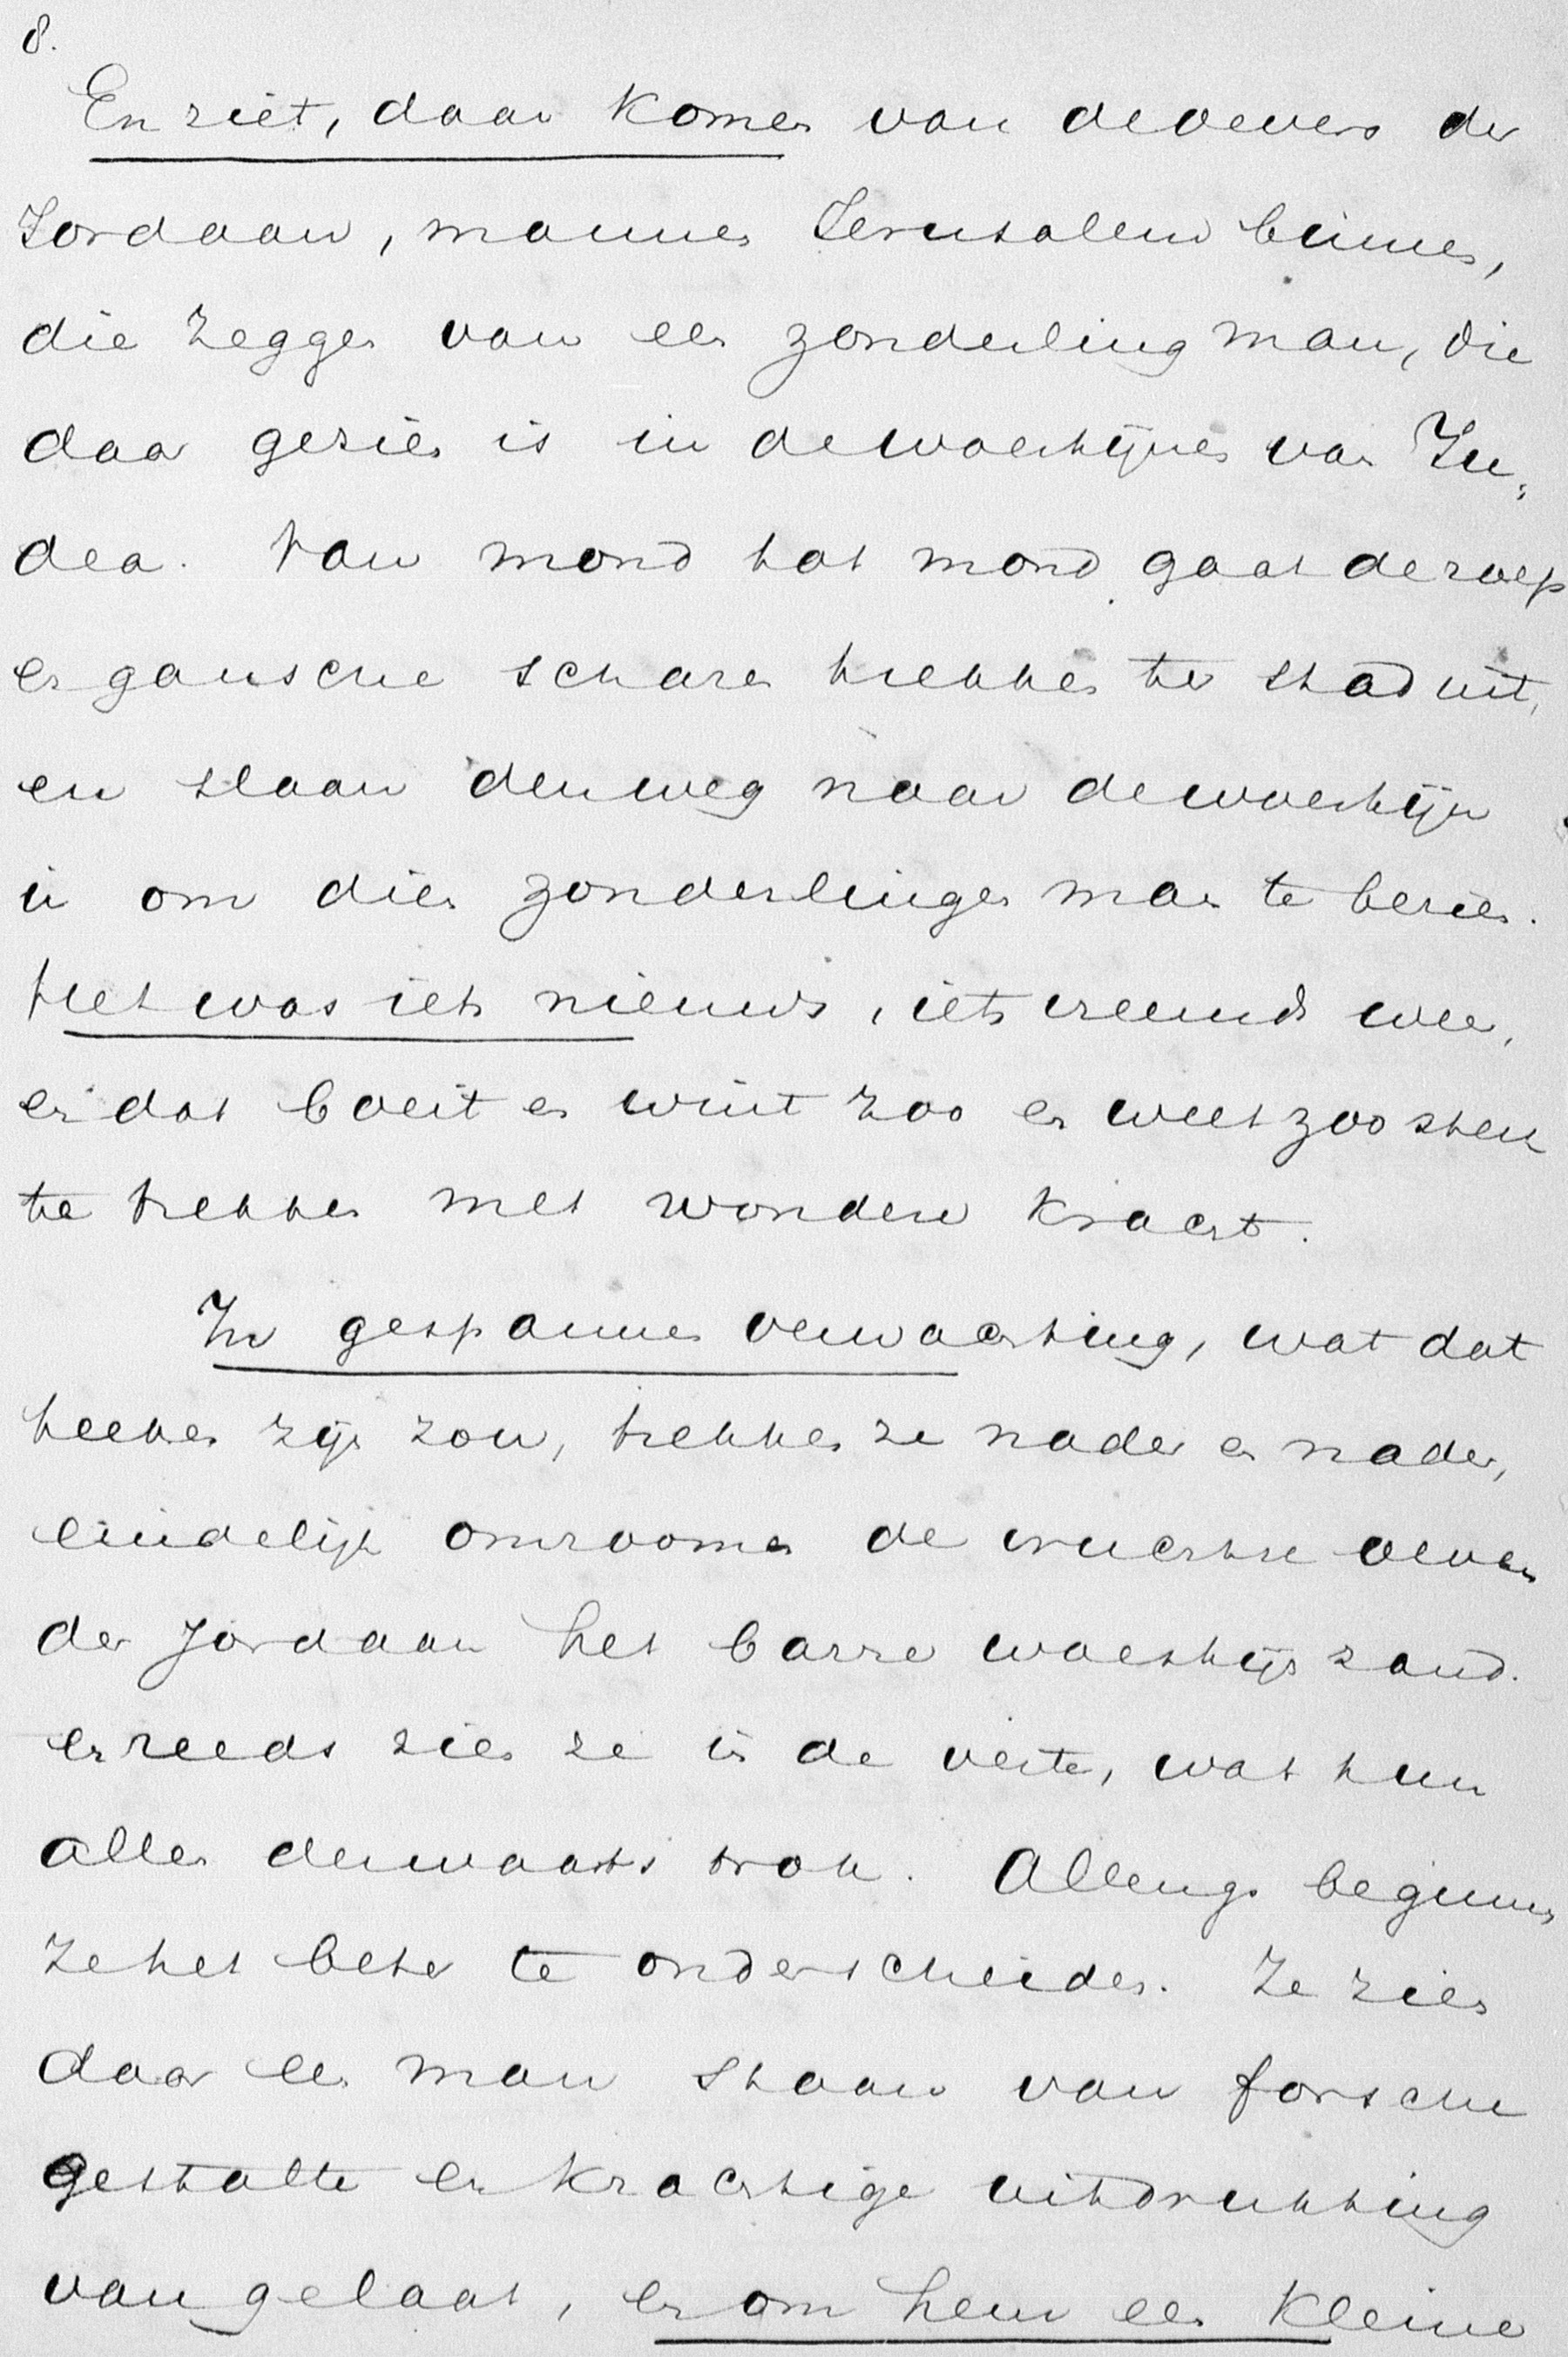 8.
En ziet, daar komen van de oevers der
Jordaan, mannen Jerusalem binnen,
die zeggen van een zonderling man, die
daar gezien is in de woestijnen van Ju„
dea. Van mond tot mond gaat de roep
en gansche scharen trekken ter stad uit,
en slaan den weg naar de woestijn
in om dien zonderlingen man te bezien.
Het was iets nieuws, iets vreemds weer,
en dat boeit en wint zoo en weet zoo sterk
te trekken met wondere kracht.
In gespannen verwachting, wat dat
teeken zijn zou, trekken ze nader en nader,
eindelijk omzoomen de vruchtbre oevers
der Jordaan het barre woestijnzand.
en reeds zien ze in de verte, wat hun
allen derwaarts trok. Allengs beginnen
ze het beter te onderscheiden. Ze zien
daar een man staan van forsche
gestalte en krachtige uitdrukking
van gelaat, en om hem een kleine